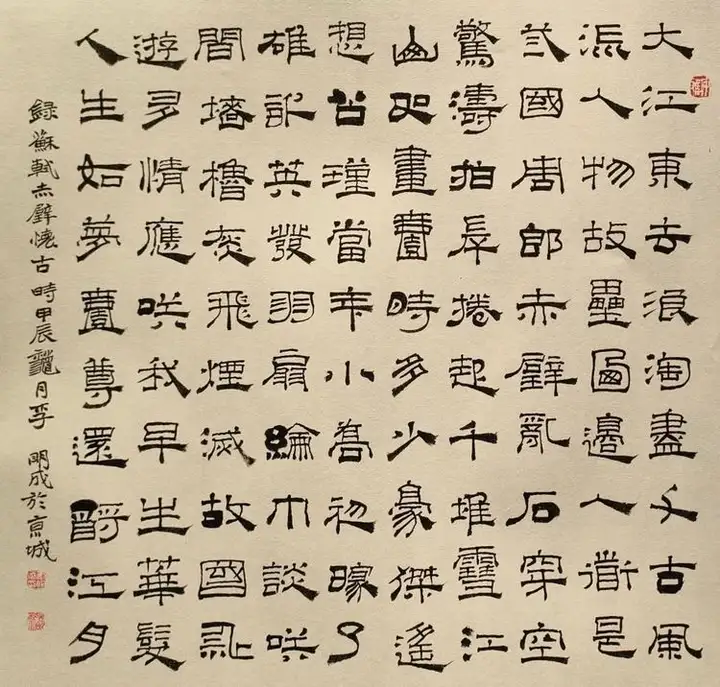 大江東去浪淘盡千古風
流人物故壘西邊人道是
弎國周郎赤壁亂石穿空
驚濤拍岸捲起千堆雪江
山如畫壹時多少豪傑遙
想公瑾當年小喬初嫁了
雄姿英發羽扇綸巾談咲
間墻櫓灰飛煙滅故國神
遊多情應咲我早生華髮
人生如夢壹尊還酹江月
錄蘇軾赤壁懷古時甲辰龍月李明成於京城